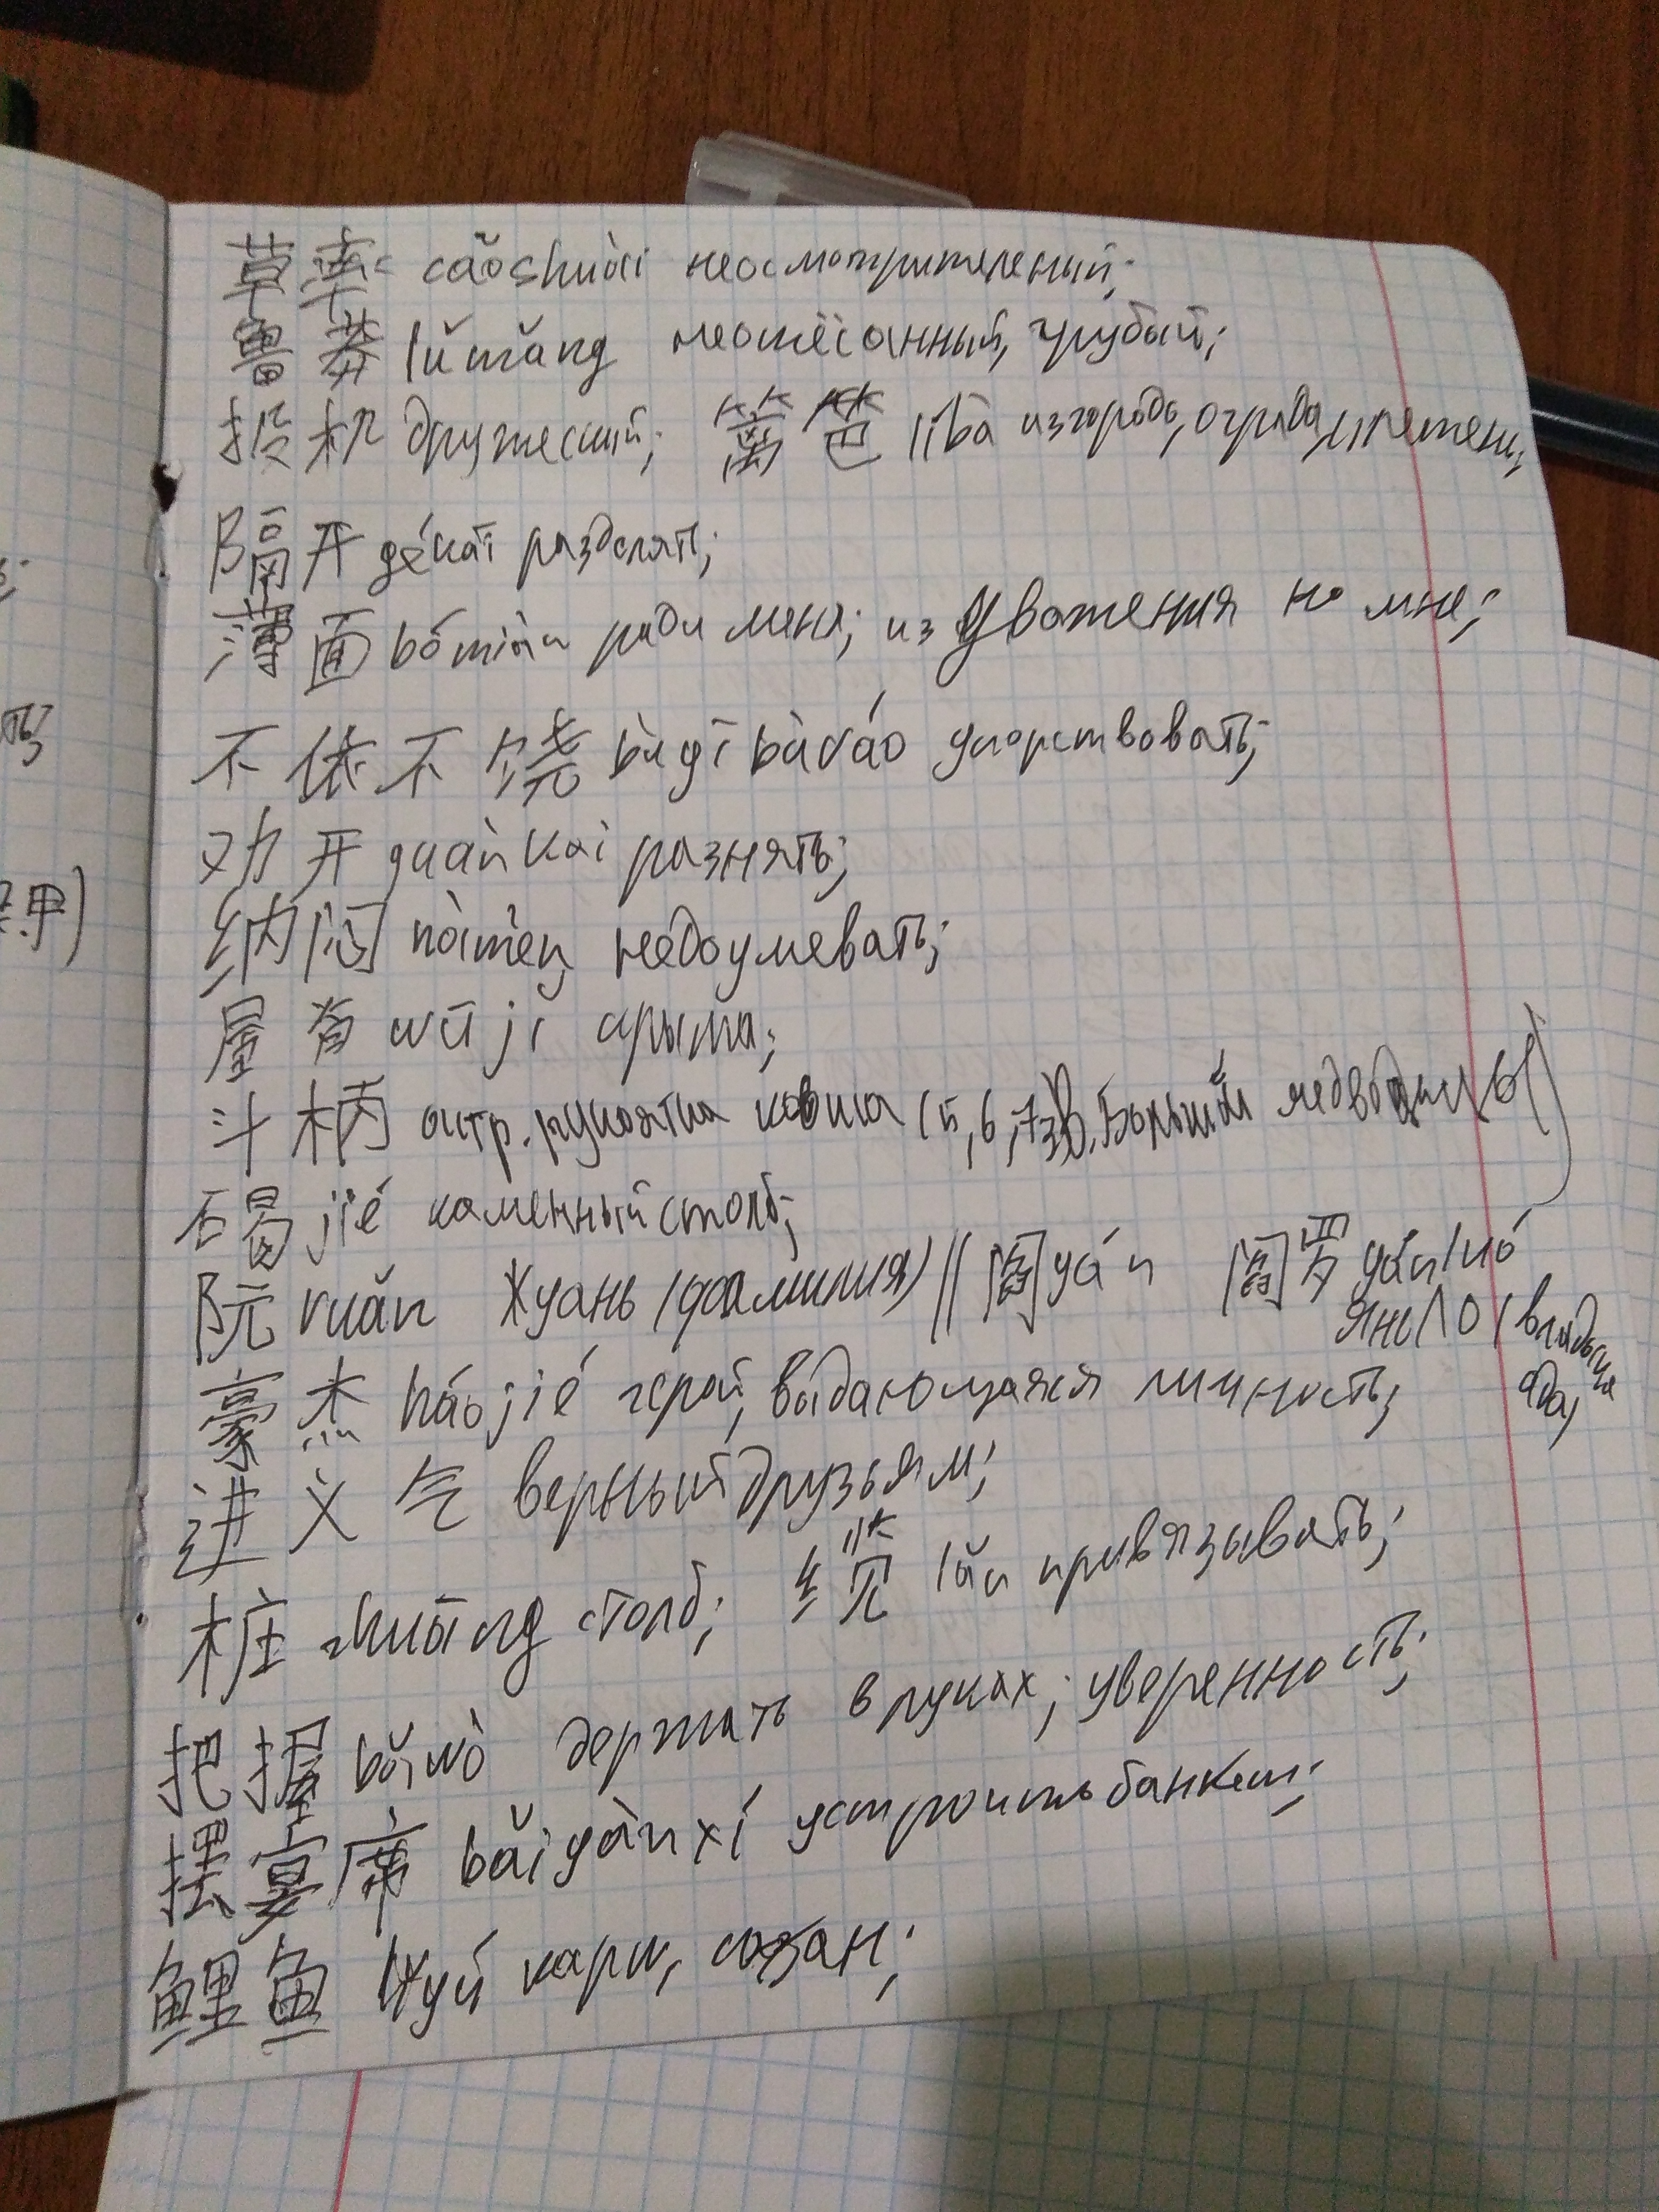 草率 cǎoshuài неосмотрительный;
鲁莽 lǔmǎng неотёсанный, грубый;
投机 дружеский; 篱笆 líba изгородь, ограда, плетень;
隔开 gékāi разделять;
薄面 bómiàn ради меня; из уважения ко мне;
不依不饶 bùyī bùráo упорствовать;
劝开 quànkāi разнять;
纳闷 nàmèn недоумевать;
屋脊 wūjǐ крыша;
斗柄 астр. рукоятка ковша (5,6,7 зв. Большой медведицы)
碣 jié каменный столб;
阮 ruǎn Жуань (фамилия) || 阎 yán 阎罗 yánluó
Янь Ло (владыка
ада)
豪杰 háojié герой, выдающаяся личность;
进义气 верный друзьям;
桩 zhuāng столб; 缆 lǎn привязывать;
把握 bǎwò держать в руках; уверенность;
摆宴席 bǎiyànxí устроить банкет;
鲤鱼 lǐyú карп, сазан;